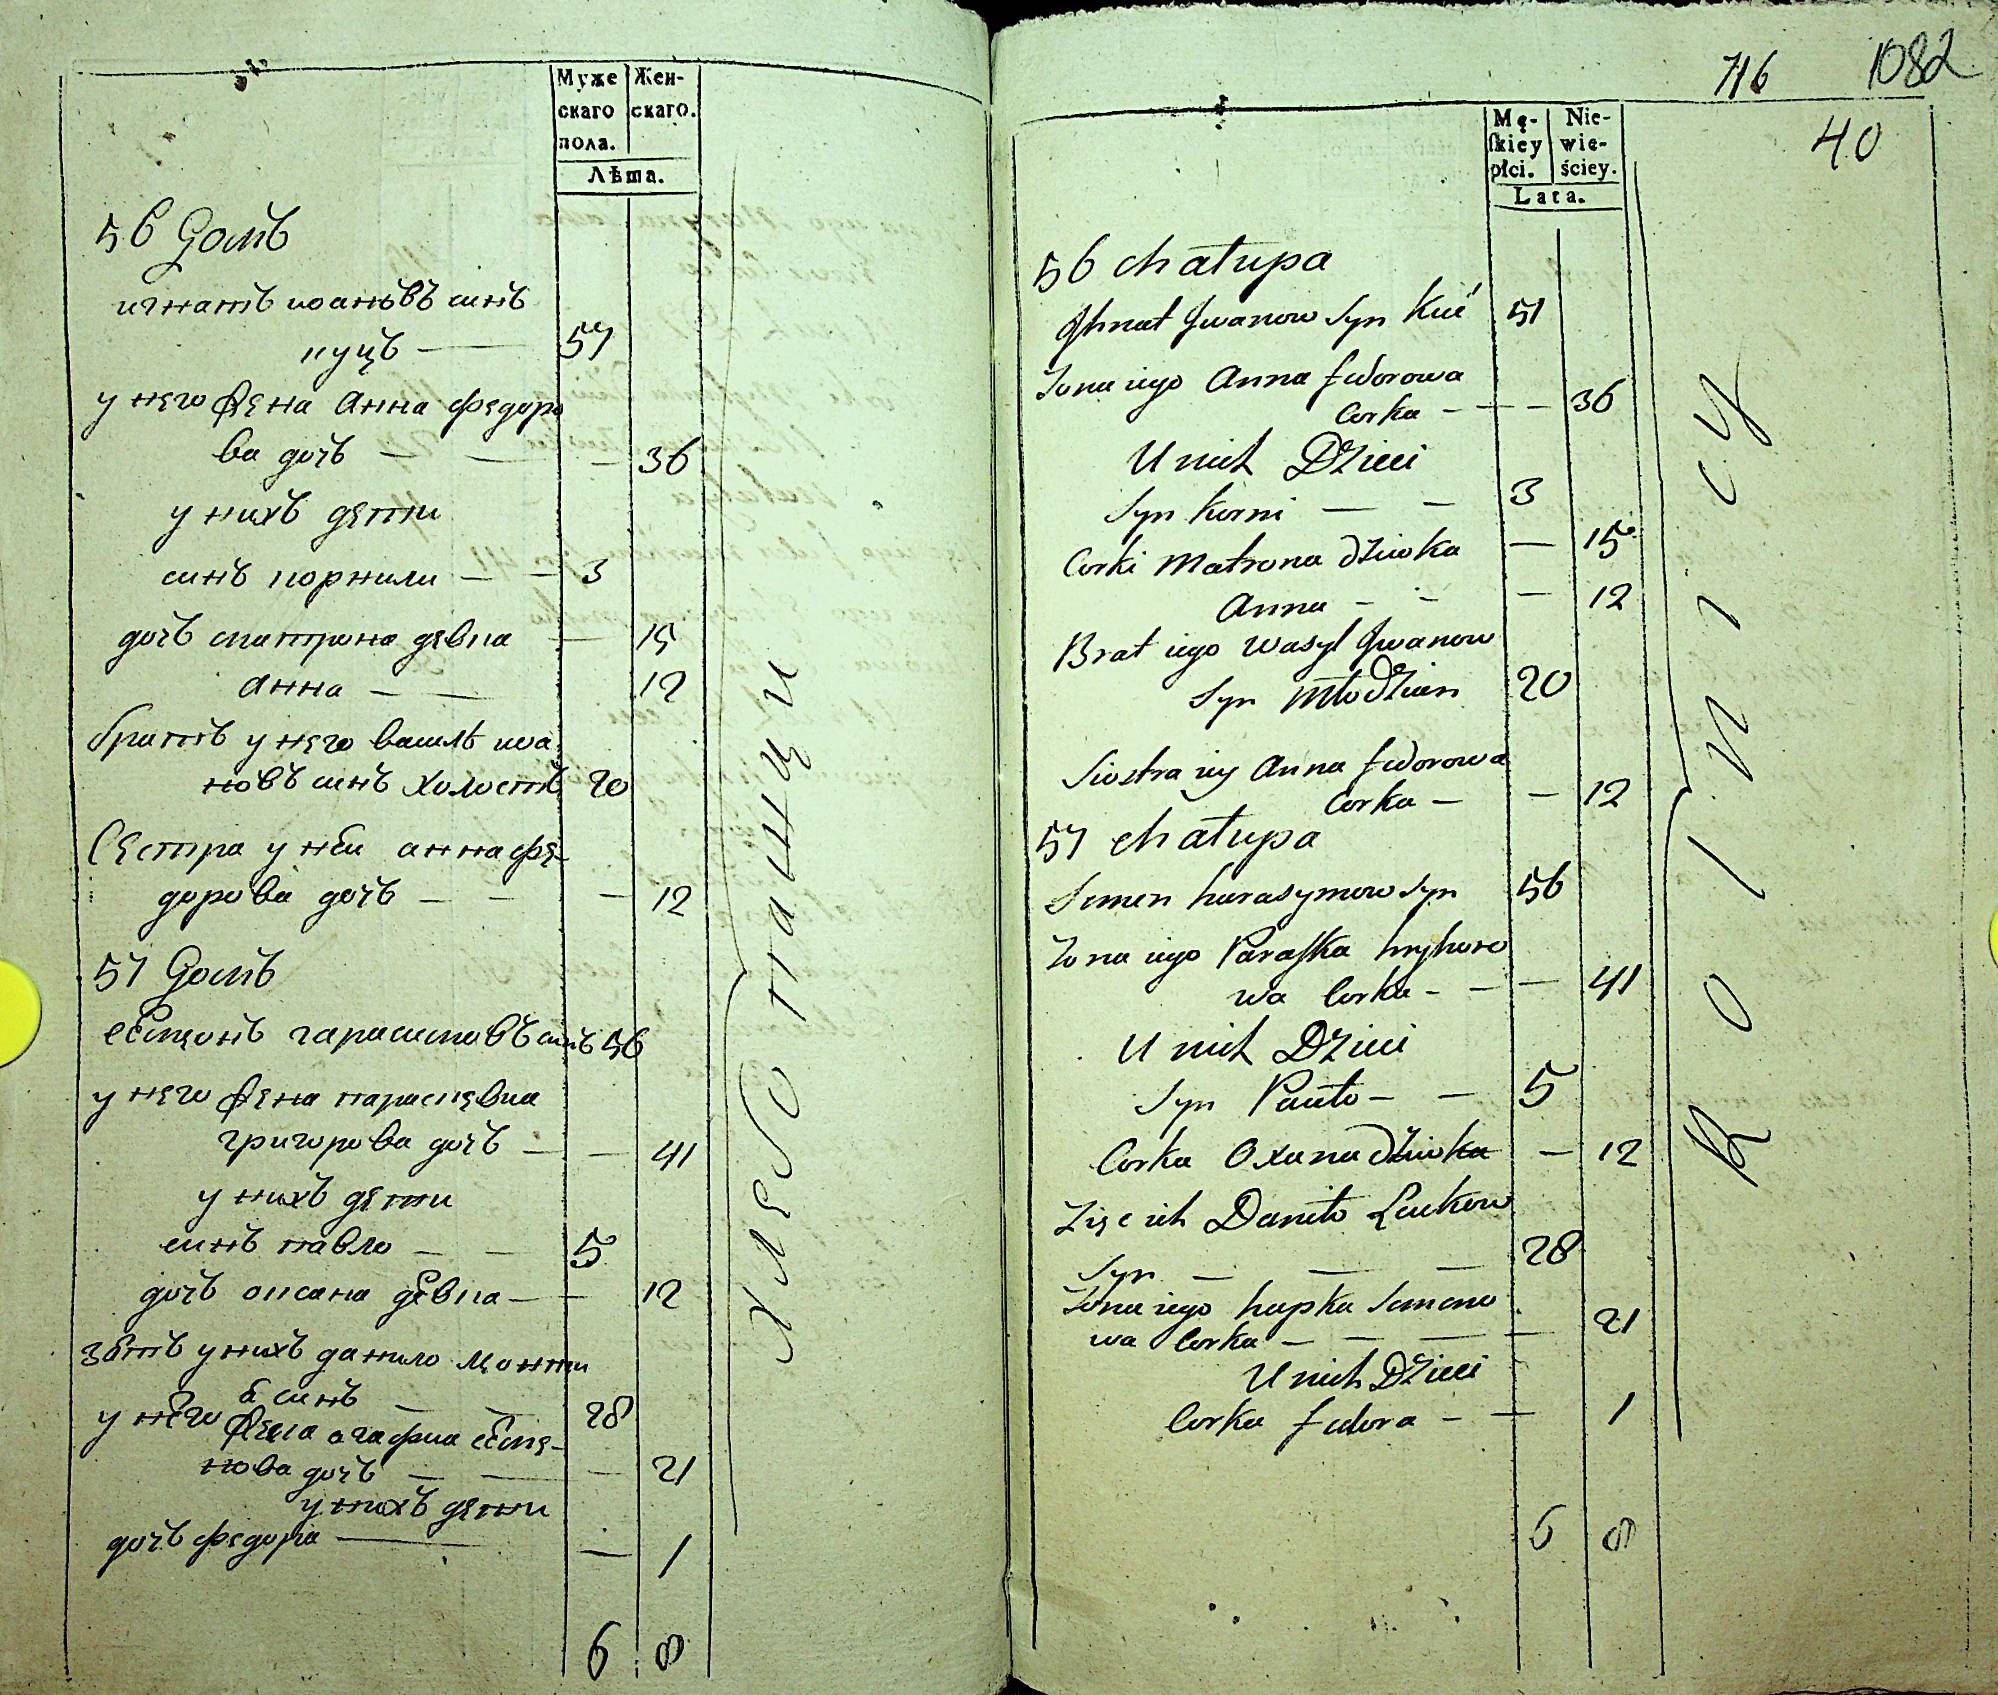 Муже
скаго
пола.
Жен-
скаго.
Лѣта.
56 домъ
игнатъ иоановъ синъ
куцъ — 57
у него жена Анна федоро
ва дочъ — — — 36
у нихъ дети
синъ корнили — — 3
дочъ матрона девка — 15
анна — — 12
братъ у него василъ иоа
новъ синъ холостъ 20
Сестра у неи анна фе-
дорова дочъ — — — 12
57 домъ
семонъ гарасимовъ синъ 56
у него жена параскевиа
григорова дочъ — — 41
у нихъ дети
синъ павло — — 5
дочъ оксана девка — — 12
зять у нихъ данило
синъ — — 28
у него жена агафиа семе-
нова дочъ — — — 21
у нихъ дети
дочъ федора — — 1
6 8
хлебопашци
716 1082
40
Mę-
skiey
płci.
Nie-
wie-
ściey.
Lata.
56 chałupa
Ihnat Jwanow Syn Kuć 51
Zona iego Anna fedorowa
Corka - — — 36
U nich Dzieci
Syn korni — — 3
Corki Matrona dziwka — 15
Anna - - — 12
Brat iego wasyl Jwanow
Syn Młodzian 20
Siostra iey Anna fedorowa
Corka — — 12
57 chałupa
Semen harasymow Syn 56
Zona iego Paraska hryhoro
wa Corka - — — 41
U nich Dzieci
Syn Pawło — — 5
Corka Oxana dziwka — 12
Zięc ich Daniło Laukow
Syn — — — 28
Zona iego hapka Semeno
wa Corka — — — — 21
U nich Dzieci
Corka fedora — — 1
6 8
Rolnicy